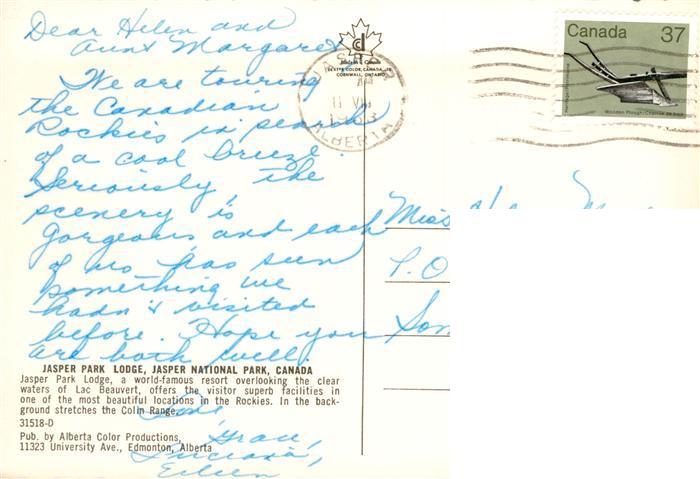 Dear Helen and
Aunt Margaret
We are touring
the Canadian
Rockies in search
of a cool breeze.
Seriously, the
scenery is
gorgeous and each
of us has seen
something we
hadn't visited
before. Hope you
are both well.
Love,
Grace,
Luciana,
Eileen
JASPER PARK LODGE, JASPER NATIONAL PARK, CANADA
Jasper Park Lodge, a world-famous resort overlooking the clear
waters of Lac Beauvert, offers the visitor superb facilities in
one of the most beautiful locations in the Rockies. In the back-
ground stretches the Colin Range.
31518-D
Pub. by Alberta Color Productions,
11323 University Ave., Edmonton, Alberta
Made in Canada
CORNWALL, ONTARIO
JASPER
ALBERTA
Canada 37
Wooden Plough/Charrue de bois
Miss
P.O
Son